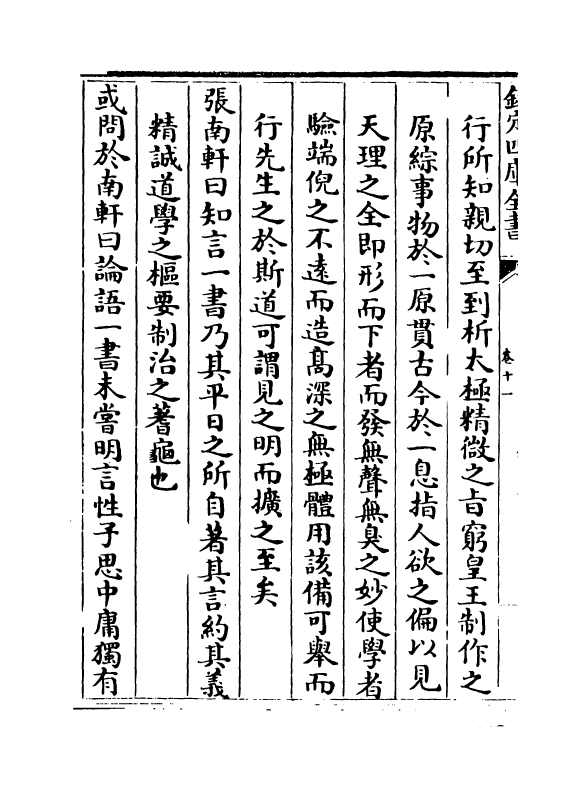 欽定四庫全書
卷十一
行所知親切至到析太極精微之旨窮皇王制作之
原綜事物於一原貫古今於一息指人欲之偏以見
天理之全即形而下者而發無聲無臭之妙使學者
驗端倪之不遠而造髙深之無極體用該備可舉而
行先生之於斯道可謂見之明而擴之至矣
張南軒曰知言一書乃其平日之所自著其言約其義
精誠道學之樞要制治之蓍龜也
或問於南軒曰論語一書未嘗明言性子思中庸獨有